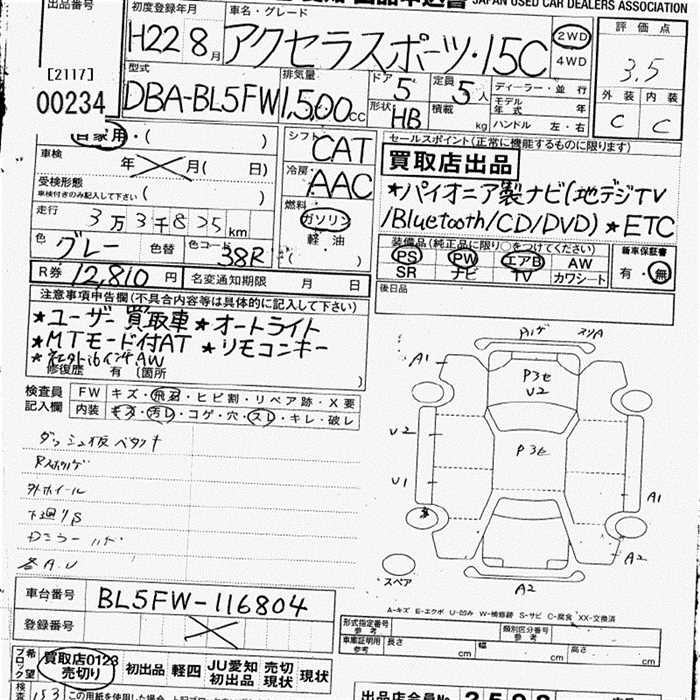 出品番号
JAPAN USED CAR DEALERS ASSOCIATION
[2117]
00234
初度登録年月
H22 8月
車名・グレード
アクセラスポーツ・15C
2WD
4WD
評価点
3.5
外装 内装
C C
型式
DBA-BL5FW
排気量
1,500cc
ドア
5
定員
5人
形状
HB
積載
kg
ディーラー・並行
モデル年式 年
ハンドル 左・右
自家用・( )
車検
年 月( 日)
受検形態
車検付きのみ記入して下さい ( )
走行
3万3千825km
色
グレー
色替
色コード
38R
シフト
CAT
冷房
AAC
燃料
ガソリン
軽油
R券 12,810円
名変通知期限 月 日
セールスポイント(正常に機能するものに限ります)
買取店出品
★パイオニア製ナビ(地デジTV
/Bluetooth/CD/DVD) ★ETC
装備品(純正品に限り○をつけてください)
PS PW エアB AW
SR ナビ TV カワシート
新車保証書
有・無
後日品
注意事項申告欄(不具合内容等は具体的に記入して下さい)
★ユーザー買取車★オートライト
★MTモード付AT ★リモコンキー
修復歴 有(箇所 )
検査員
記入欄
FW キズ・飛石・ヒビ割・リペア跡・X要
内装 キズ・汚レ・コゲ・穴・スレ・キレ・破レ
外ホイール
各A.U
A1
P3セ
U2
U2
P3セ
U1
A1
A2
A2
スペア
A-キズ E-エクボ U-凹み W-補修跡 S-サビ C-腐食 XX-交換済
車台番号
BL5FW-116804
登録番号
型式指定番号
参考
類別区分番号
参考
車庫証明用
参考
長さ cm 幅 cm 高さ cm
希望
ブロック
買取店0123
売切り
初出品
軽四
JU愛知
初出品
売切
現状
現状
出品店会員No.